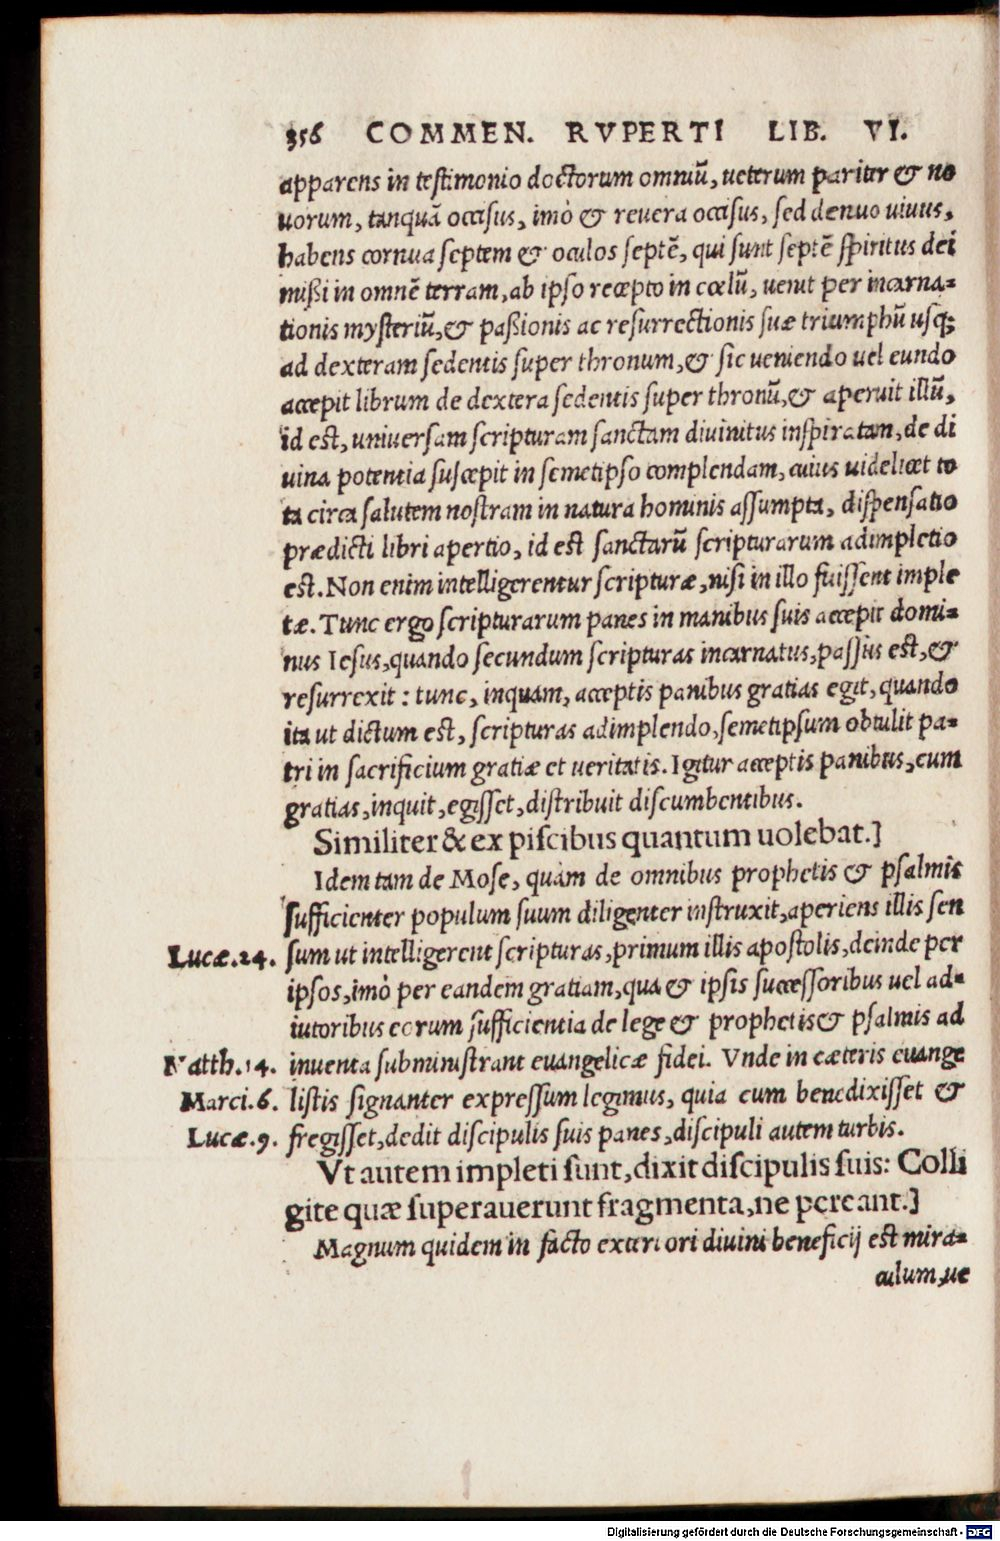 356 COMMEN. RVPERTI LIB. VI.
apparens in testimonio doctorum omniũ, ueterum pariter & no
uorum, tanquã occisus, imò & reuera occisus, sed denuo uiuus,
habens cornua septem & oculos septẽ, qui sunt septẽ spiritus dei
mißi in omnẽ terram, ab ipso recepto in cœlũ, uenit per incarna=
tionis mysteriũ, & paßionis ac resurrectionis suæ triumphũ usq;
ad dexteram sedentis super thronum, & sic ueniendo uel eundo
accepit librum de dextera sedentis super thronũ, & aperuit illũ,
id est, uniuersam scripturam sanctam diuinitus inspiratam, de di
uina potentia suscepit in semetipso complendam, cuius uidelicet to
ta circa salutem nostram in natura hominis assumpta, dispensatio
prædicti libri apertio, id est sanctarũ scripturarum adimpletio
est. Non enim intelligerentur scripturæ, nisi in illo fuissent imple
tæ. Tunc ergo scripturarum panes in manibus suis accepit domi=
nus Iesus, quando secundum scripturas incarnatus, passus est, &
resurrexit : tunc, inquam, acceptis panibus gratias egit, quando
ita ut dictum est, scripturas adimplendo, semetipsum obtulit pa=
tri in sacrificium gratiæ et ueritatis. Igitur acceptis panibus, cum
gratias, inquit, egisset, distribuit discumbentibus.
Similiter & ex piscibus quantum uolebat.]
Idem tam de Mose, quàm de omnibus prophetis & psalmis
sufficienter populum suum diligenter instruxit, aperiens illis sen
Lucæ.24. sum ut intelligerent scripturas, primum illis apostolis, deinde per
ipsos, imò per eandem gratiam, qua & ipsis successoribus uel ad=
iutoribus eorum sufficientia de lege & prophetis & psalmis ad
Matth.14. inuenta subministrant euangelicæ fidei. Vnde in cæteris euange
Marci.6. listis signanter expressum legimus, quia cum benedixisset &
Lucæ.9. fregisset, dedit discipulis suis panes, discipuli autem turbis.
Vt autem impleti sunt, dixit discipulis suis: Colli
gite quæ superauerunt fragmenta, ne pereant.]
Magnum quidem in facto exteriori diuini beneficij est mira=
culum, ue
Digitalisierung gefördert durch die Deutsche Forschungsgemeinschaft - DFG